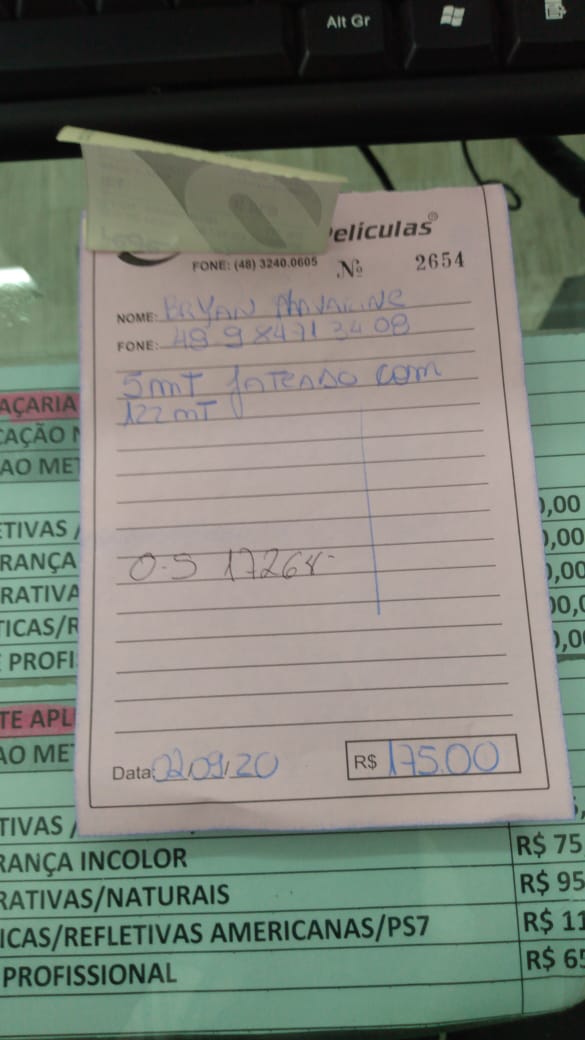 Alt Gr
Películas®
FONE: (48) 3240.0605
Nº 2654
NOME: BRYAN
FONE: 48 9 8471 3408
5mT JATEADO com
1,22mT
O.S 17264
Data: 02/09/20
R$ 175.00
AÇARIA
CAÇÃO
AO MET
ETIVAS /
RANÇA
RATIVA
TICAS/R
E PROFI
0,00
0,00
0,00
00,0
0,00
TE APL
AO ME
TIVAS /
RANÇA INCOLOR
RATIVAS/NATURAIS
ICAS/REFLETIVAS AMERICANAS/PS7
PROFISSIONAL
R$ 75
R$ 95
R$ 11
R$ 65